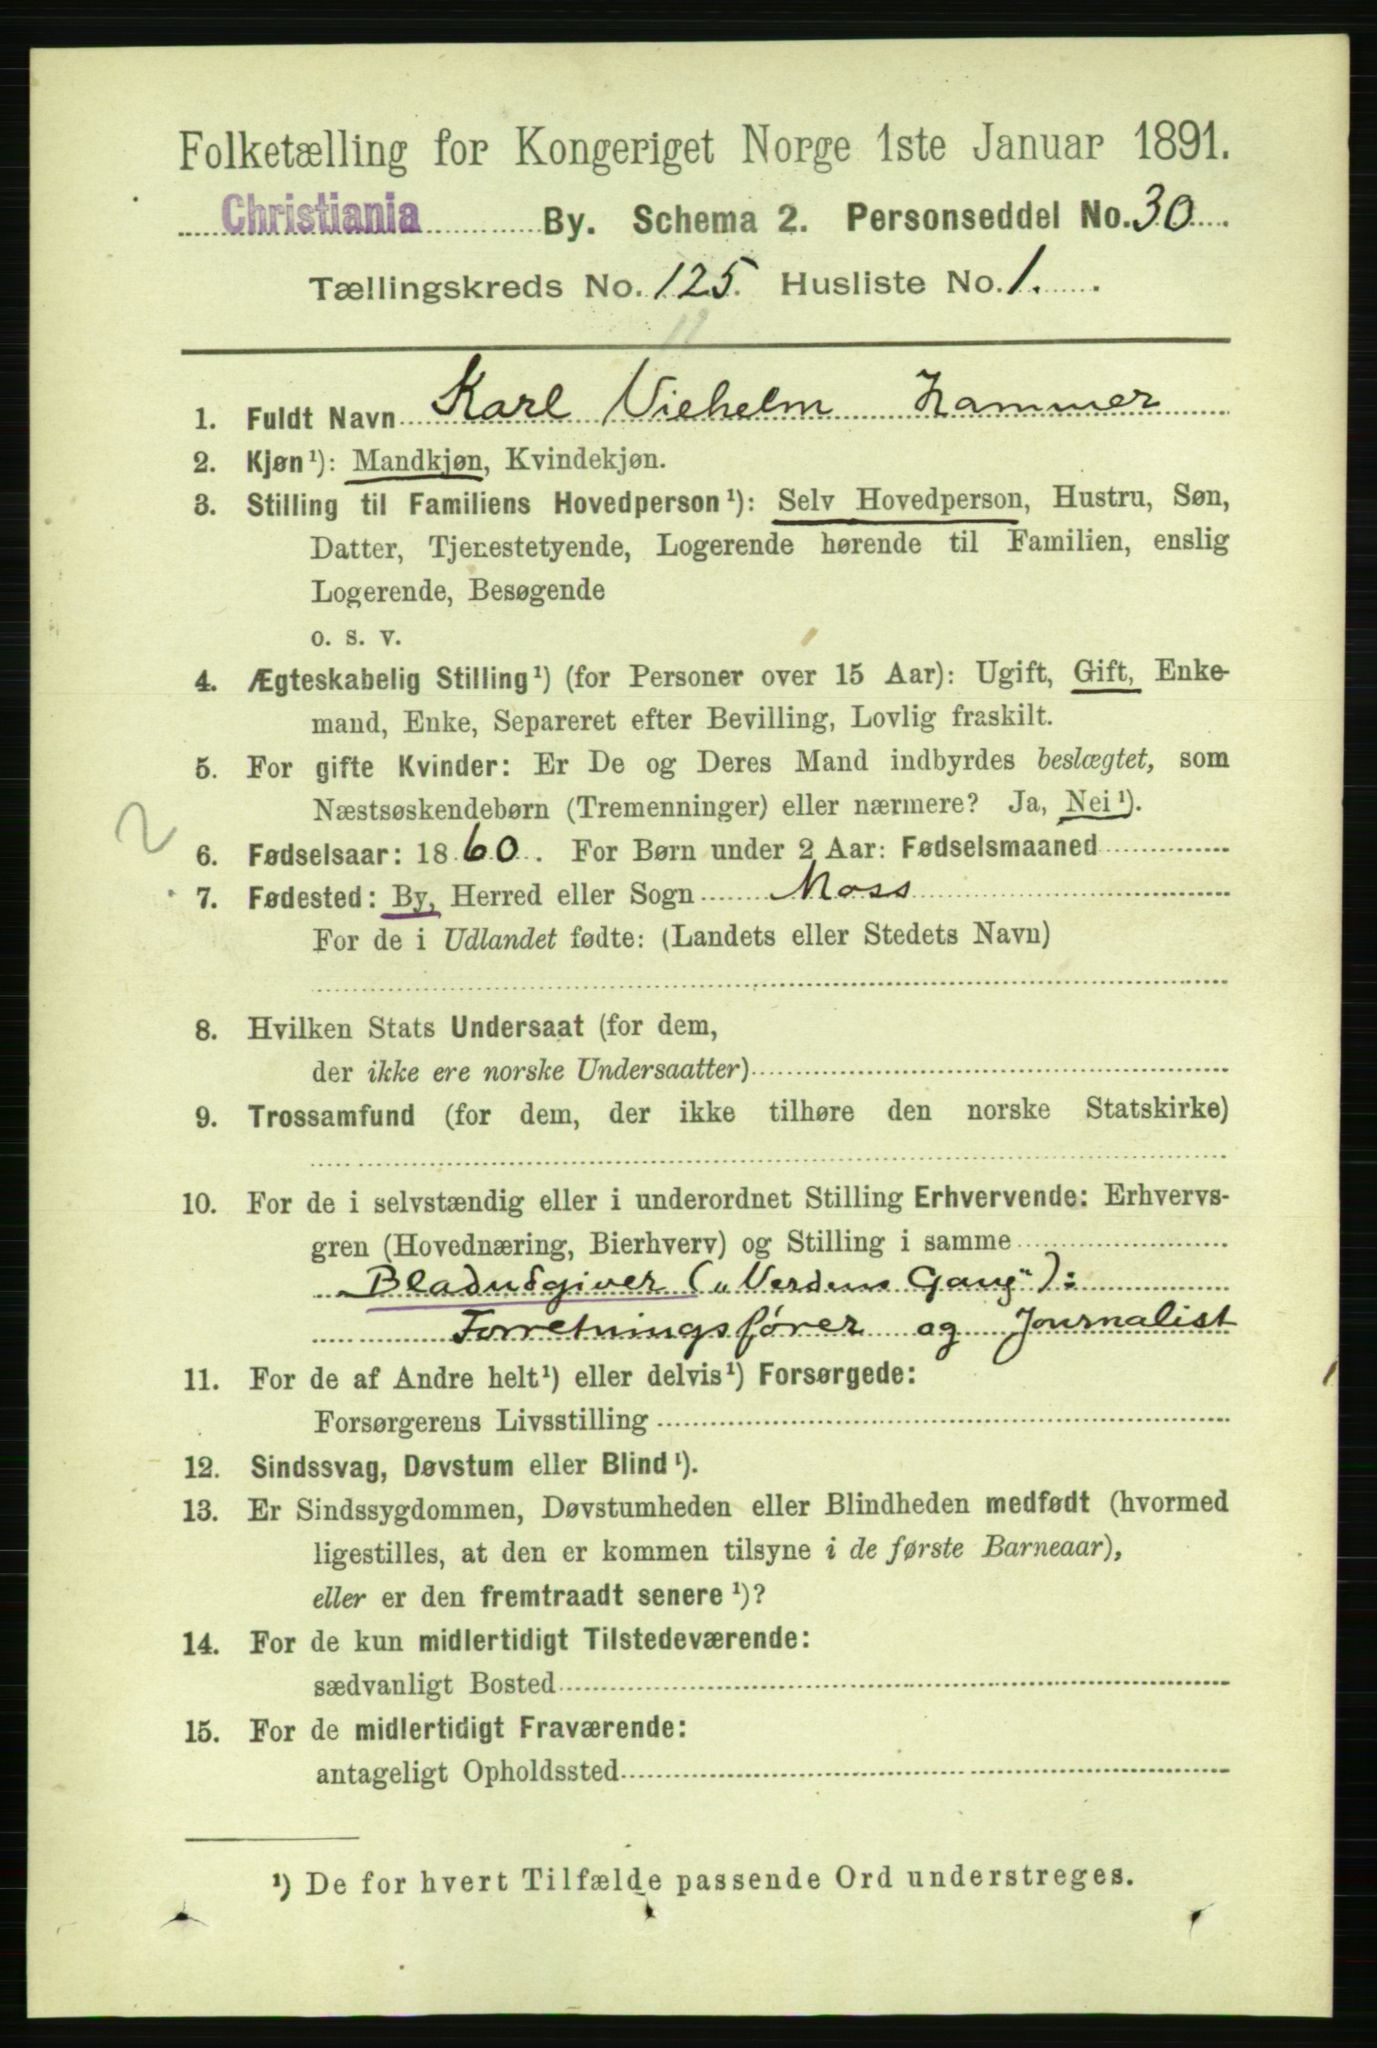 Folketælling for Kongeriget Norge 1ste Januar 1891.
Christiania By. Schema 2. Personseddel No. 30
Tællingskreds No. 125. Husliste No. 1.
1. Fuldt Navn Karl Vilhelm Hammer
2. Kjøn¹): Mandkjøn, Kvindekjøn.
3. Stilling til Familiens Hovedperson¹): Selv Hovedperson, Hustru, Søn,
Datter, Tjenestetyende, Logerende hørende til Familien, enslig
Logerende, Besøgende
o. s. v.
4. Ægteskabelig Stilling¹) (for Personer over 15 Aar): Ugift, Gift, Enke-
mand, Enke, Separeret efter Bevilling, Lovlig fraskilt.
5. For gifte Kvinder: Er De og Deres Mand indbyrdes beslægtet, som
Næstsøskendebørn (Tremenninger) eller nærmere? Ja, Nei¹).
2
6. Fødselsaar: 1860. For Børn under 2 Aar: Fødselsmaaned
7. Fødested: By, Herred eller Sogn Moss
For de i Udlandet fødte: (Landets eller Stedets Navn)
8. Hvilken Stats Undersaat (for dem,
der ikke ere norske Undersaatter)
9. Trossamfund (for dem, der ikke tilhøre den norske Statskirke)
10. For de i selvstændig eller i underordnet Stilling Erhvervende: Erhvervs-
gren (Hovednæring, Bierhverv) og Stilling i samme
Bladudgiver („Verdens Gang“):
Forretningsfører og Journalist
11. For de af Andre helt¹) eller delvis¹) Forsørgede:
Forsørgerens Livsstilling
12. Sindssvag, Døvstum eller Blind¹).
13. Er Sindssygdommen, Døvstumheden eller Blindheden medfødt (hvormed
ligestilles, at den er kommen tilsyne i de første Barneaar),
eller er den fremtraadt senere¹)?
14. For de kun midlertidigt Tilstedeværende:
sædvanligt Bosted
15. For de midlertidigt Fraværende:
antageligt Opholdssted
¹) De for hvert Tilfælde passende Ord understreges.